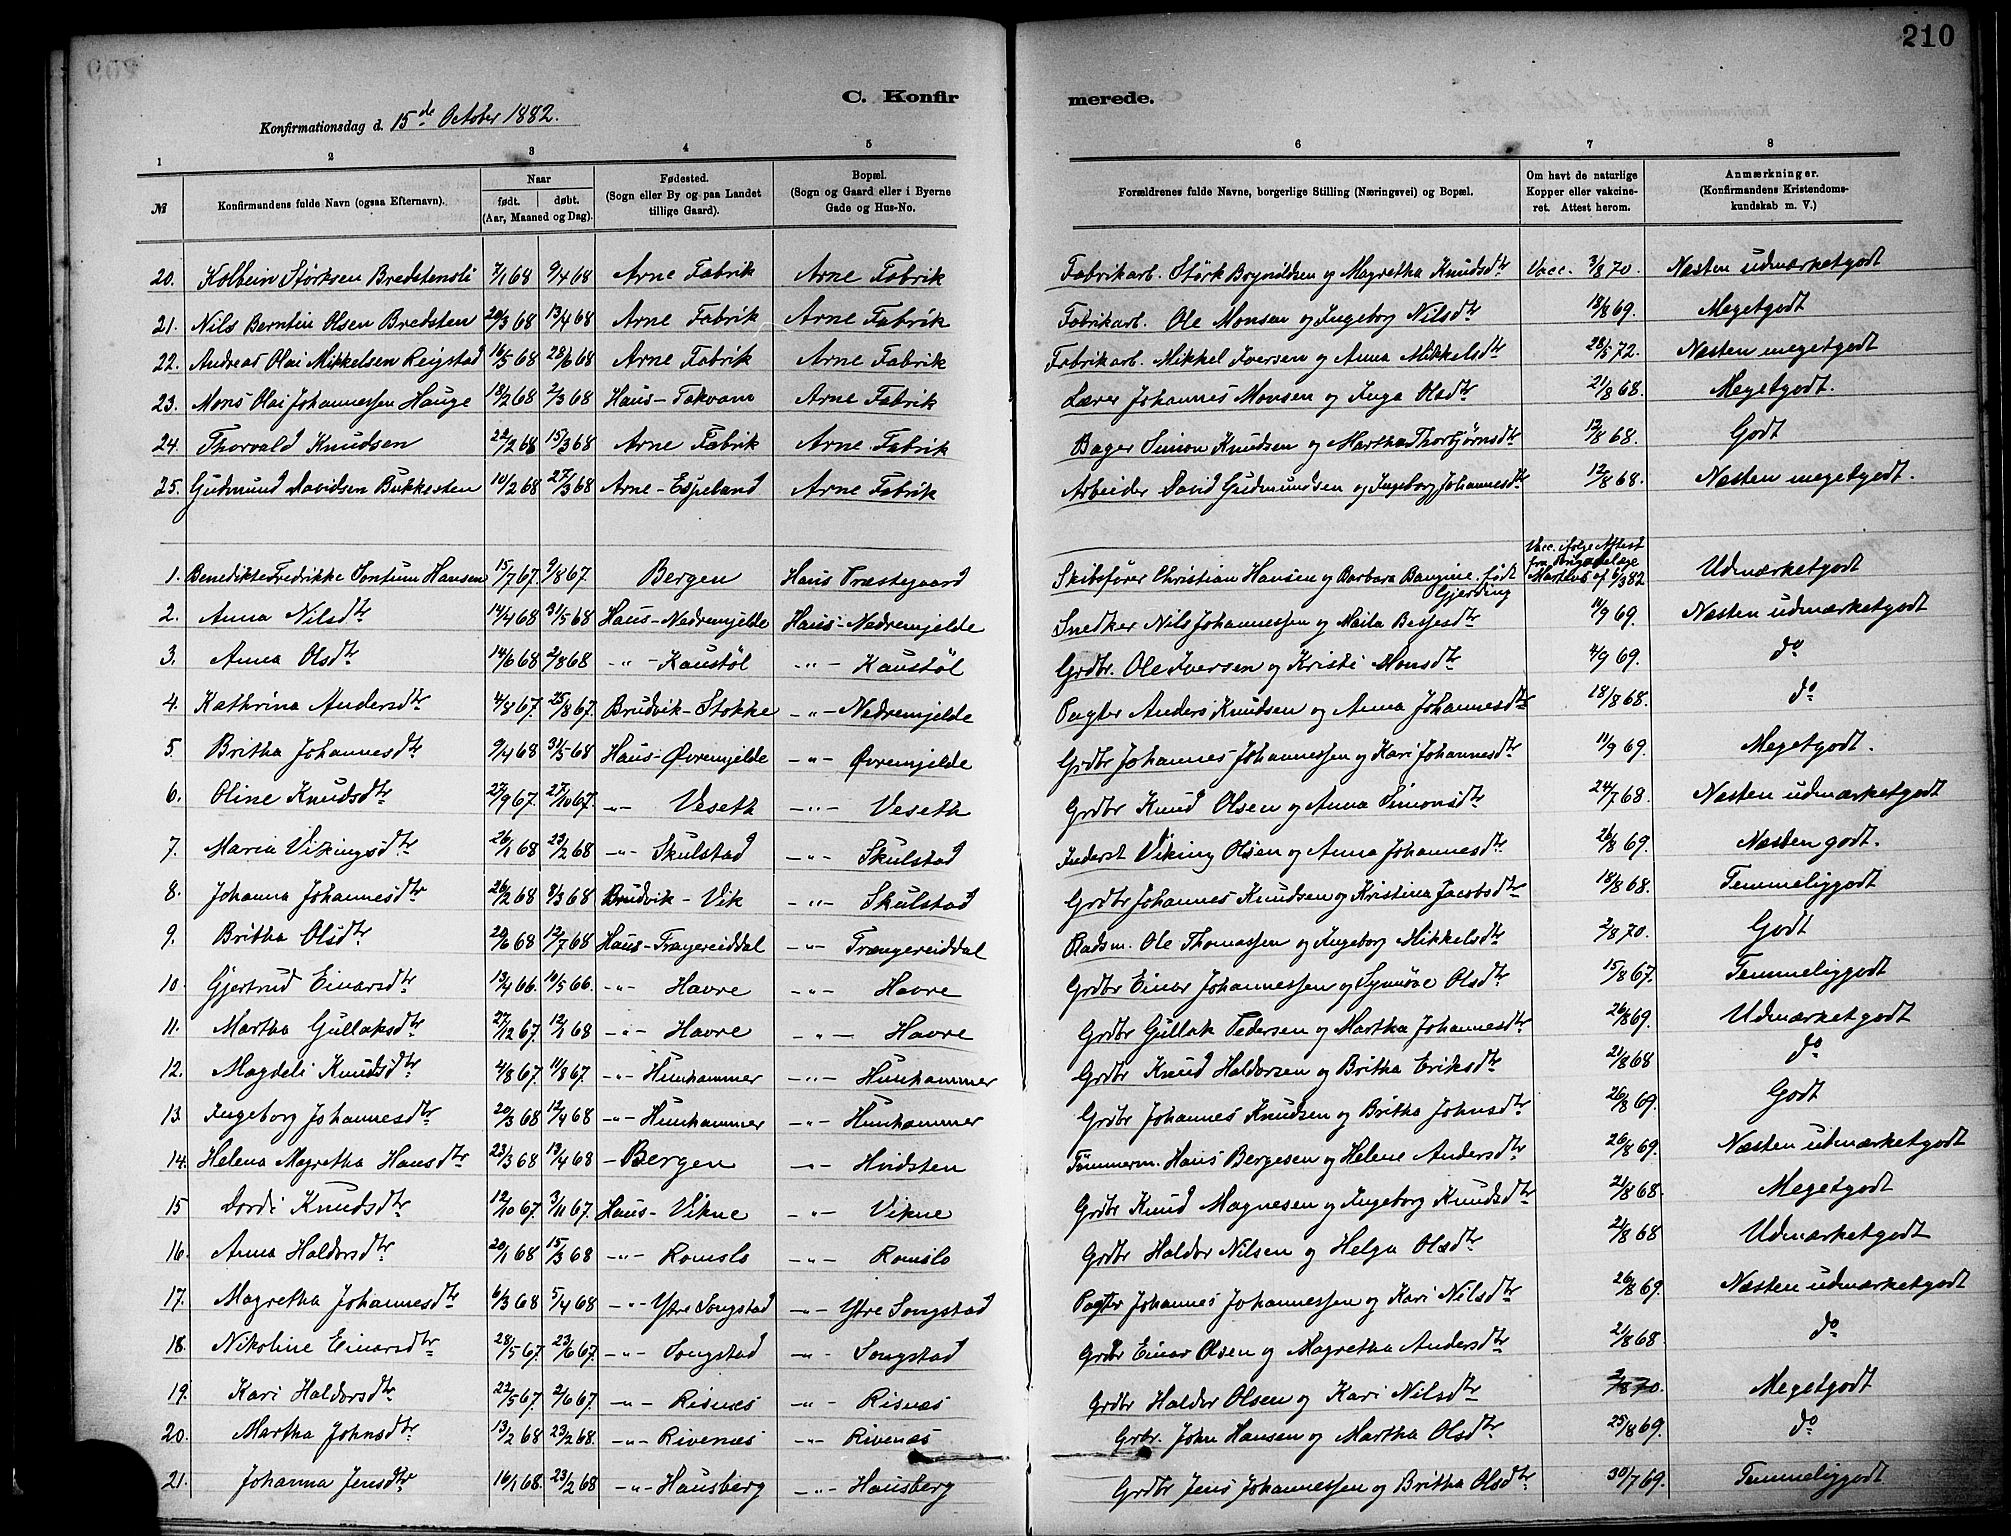 210
C. Konfir merede.
Konfirmationsdag d. 15de October 1882.
1 2 3 4 5 6 7 8
№ Konfirmandens fulde Navn (ogsaa Efternavn). Naar født. døbt. (Aar, Maaned og Dag). Fødested. (Sogn eller By og paa Landet tillige Gaard). Bopæl. (Sogn og Gaard eller i Byerne Gade og Hus-No. Forældrenes fulde Navne, borgerlige Stilling (Næringsvei) og Bopæl. Om havt de naturlige Kopper eller vakcineret. Attest herom. Anmærkninger. (Konfirmandens Kristendomskundskab m. V.)
20. Kolbein Størksen Bredstensli 7/1 68 9/4 68 Arne Fabrik Arne Fabrik Fabrikarb. Størk Brynildsen og Magretha Knudsdtr Vacc. 3/8 70. Næsten udmærketgodt
21. Nils Berntin Olsen Bredsten 20/3 68 13/4 68 Arne Fabrik Arne Fabrik Fabrikarb. Ole Monsen og Ingeborg Nilsdtr 18/8 69. Megetgodt
22. Andreas Olai Mikkelsen Reigstad 16/5 68 28/6 68 Arne Fabrik Arne Fabrik Fabrikarb. Mikkel Iversen og Anna Mikkelsdtr 28/5 72. Næsten megetgodt
23. Mons Olai Johannessen Hauge 18/2 68 2/3 68 Haus - Takvam Arne Fabrik Lærer Johannes Monsen og Inga Olsdtr 21/8 68. Megetgodt.
24. Thorvald Knudsen 22/2 68 15/3 68 Arne Fabrik Arne Fabrik Bager Simon Knudsen og Martha Thorbjørnsdtr 12/8 68. Godt
25. Gudmund Davidsen Bukkesten 10/2 68 27/3 68 Arne - Espeland Arne Fabrik Arbeider David Gudmundsen og Ingeborg Johannesdtr 12/8 68. Næsten megetgodt.
1. Benedikte Fredrikke Sontum Hansen 15/7 67. 9/8 67 Bergen Haus Præstegaard Skibsfører Christian Hansen og Barbara født Gjerding Vacc. ifølge Attest fra Martens af 6/3 82 Udmærketgodt
2. Anna Nilsdtr 14/4 68 31/5 68 Haus - Nedremjelde Haus - Nedremjelde Snedker Nils Johannessen og Maila Bessesdtr 11/9 69. Næsten udmærketgodt
3. Anna Olsdtr 14/6 68 2/8 68 -"- - Kaustøl -"- Kaustøl Grdbr. Ole Iversen og Kristi Monsdtr 4/9 69. do
4. Kathrina Andersdtr 4/8 67. 25/8 67. Brudvik - Stokke -"- Nedremjelde Pagter Anders Knudsen og Anna Johannesdtr 18/8 68. do
5. Britha Johannesdtr 9/4 68 31/5 68 Haus - Øvremjelde -"- Øvremjelde Grdbr Johannes Johannessen og Kari Johannesdtr 11/9 69. Megetgodt.
6. Oline Knudsdtr 27/9 67. 27/10 67. -"- Veseth -"- Veseth Grdbr Knud Olsen og Anna Simonsdtr 24/7 68. Næsten udmærketgodt
7. Maria Vikingsdtr 26/1 68 23/2 68 -"- Skulstad -"- Skulstad Inderst Viking Olsen og Anna Johannesdtr 26/8 69. Næsten godt.
8. Johanna Johannesdtr 26/2 68 8/3 68 Brudvik - Vik -"- Skulstad Grdbr Johannes Knudsen og Kristina Jacobsdtr 18/8 68. Temmeliggodt
9. Britha Olsdtr 20/6 68 12/7 68 Haus - Trængereiddal -"- Trængereiddal Pladsm. Ole Thomassen og Ingeborg Mikkelsdtr 2/8 70. Godt
10. Gjertrud Einarsdtr 13/4 66. 10/5 66. -"- Havre -"- Havre Grdbr Einar Johannessen og Synnøve Olsdtr 15/8 67. Temmeliggodt
11. Martha Gullaksdtr 27/12 67. 12/1 68 -"- Havre -"- Havre Grdbr Gullak Pedersen og Martha Johannesdtr 26/8 69. Udmærketgodt
12. Magdeli Knudsdtr 4/8 67. 11/8 67. -"- Hunhammer -"- Hunhammer Grdbr Knud Haldorsen og Britha Eriksdtr 21/8 68 do
13. Ingeborg Johannesdtr 20/3 68 12/4 68 -"- Hunhammer -"- Hunhammer Grdbr Johannes Knudsen og Britha Johnsdtr 26/8 69. Godt
14. Helena Magretha Hansdtr 23/3 68 13/4 68 - Bergen -"- Hvidsten Tømmerm. Hans Bergesen og Helene Andersdtr 26/8 69. Næsten udmærketgodt
15 Dordi Knudsdtr 12/10 67. 3/11 67. Haus - Vikne -"- Vikne Grdbr Knud Magnesen og Ingeborg Knudsdtr 21/8 68. Megetgodt
16. Anna Haldorsdtr 20/1 68 15/3 68 -"- Romslo -"- Romslo Grdbr Haldor Nilsen og Helga Olsdtr 21/8 68 Udmærketgodt
17. Magretha Johannesdtr 6/3 68 5/4 68 -"- Ytre Songstad -"- Ytre Songstad Pagter Johannes Johannessen og Kari Nilsdtr 26/8 69. Næsten udmærketgodt
18. Nikoline Einarsdtr 28/5 67. 23/6 67. -"- Songstad -"- Songstad Grdbr Einar Olsen og Magretha Andersdtr 21/8 68 do
19. Kari Haldorsdtr 22/5 67. 2/6 67. -"- Risnæs -"- Risnæs Grdbr Haldor Olsen og Kari Nilsdtr 2/8 70. Megetgodt
20. Martha Johnsdtr 13/2 68 23/2 68. -"- Rivenæs -"- Rivenæs Grdbr. John Hansen og Martha Olsdtr 25/8 69. do
21. Johanna Jensdtr 16/1 68. 23/2 68 -"- Hausberg -"- Hausberg Grdbr Jens Johannessen og Britha Olsdtr 30/7 69. Temmeliggodt